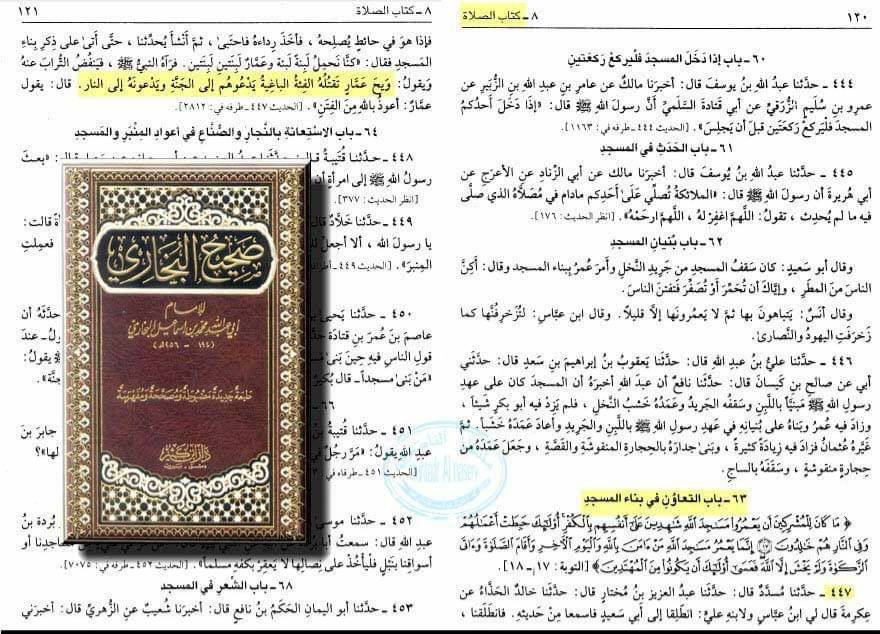 ١٢٠
٨ ـ كتاب الصلاة
٦٠ ـ باب إذا دَخَلَ المسجدَ فلْيركعْ رَكعَتينِ
٤٤٤ ـ حدَّثنا عبدُ اللهِ بنُ يوسفَ قال: أخبرَنا مالكٌ عن عامرِ بنِ عبدِ اللهِ بنِ الزُّبيرِ عن
عمرِو بنِ سُليمٍ الزُّرَقيِّ عن أبي قَتادةَ السَّلَميِّ أنَّ رسولَ اللهِ ﷺ قال: «إذا دَخَلَ أحدُكمُ
المسجدَ فلْيَركعْ رَكعتَينِ قبلَ أن يَجلِسَ». [الحديث ٤٤٤ ـ طرفه في: ١١٦٣].
٦١ ـ باب الحَدَثِ في المسجدِ
٤٤٥ ـ حدَّثنا عبدُ اللهِ بنُ يوسفَ قال: أخبرَنا مالك عن أبي الزِّنادِ عنِ الأعرَجِ عن
أبي هُريرةَ أن رسولَ الله ﷺ قال: «الملائكةُ تُصلِّي عَلَىٰ أحَدِكم مادام في مُصَلاَّهُ الذي صلَّى
فيه ما لم يُحدِث، تقولُ: اللَّهمَّ اغفِرْ لهُ، اللَّهمَّ ارحَمْهُ». [انظر الحديث: ١٧٦].
٦٢ ـ باب بُنيانِ المسجدِ
وقال أبو سَعيدٍ: كان سَقفُ المسجدِ من جَرِيدِ النَّخلِ وأمَرَ عُمرُ بِبناءِ المسجد وقال: أكِنَّ
الناسَ منَ المطَرِ، وإيَّاكَ أن تُحَمِّرَ أوْ تُصَفِّرَ فتَفتنَ الناسَ.
وقال أنَسٌ: يَتباهَونَ بها ثمَّ لا يَعمُرونَها إلَّا قليلاً. وقال ابن عبَّاسٍ: لتُزَخرِفُنَّها كما
زَخرَفَتِ اليهودُ والنَّصارىٰ.
٤٤٦ ـ حدَّثنا عليُّ بنُ عبدِ اللهِ قال: حدَّثَنا يَعقوبُ بنُ إبراهيمَ بنِ سَعدٍ قال: حدَّثَني
أبي عن صالحِ بنِ كَيسانَ قال: حدَّثَنا نافعٌ أن عبدَ اللهِ أخبرَهُ أن المسجدَ كان على عهدِ
رسولِ اللهِ ﷺ مَبنيّاً باللَّبِنِ وسَقفُه الجَريدُ وعَمَدُهُ خَشبُ النَّخلِ، فلم يَزِدْ فيه أبو بكرٍ شيئاً،
وزادَ فيه عُمرُ وبَناهُ على بُنيانِهِ في عَهدِ رسولِ اللهِ ﷺ باللَّبِنِ والجَريدِ وأعادَ عَمَدَهُ خَشَباً. ثمَّ
غيَّرَهُ عُثمانُ فزادَ فيه زِيادةً كثيرةً، وبَنىٰ جِدارَهُ بالحِجارةِ المنقوشةِ والقَصَّةِ، وجَعَلَ عَمَدَهُ من
حِجارةٍ منقوشةٍ، وسَقَفَهُ بالساجِ.
٦٣ ـ باب التعاوُنِ في بناءِ المسجدِ
﴿مَا كَانَ لِلْمُشْرِكِينَ أَن يَعْمُرُوا مَسَٰجِدَ اللَّهِ شَٰهِدِينَ عَلَىٰٓ أَنفُسِهِم بِالْكُفْرِ أُولَٰٓئِكَ حَبِطَتْ أَعْمَٰلُهُمْ
وَفِي النَّارِ هُمْ خَٰلِدُونَ ۝ إِنَّمَا يَعْمُرُ مَسَٰجِدَ اللَّهِ مَنْ ءَامَنَ بِاللَّهِ وَالْيَوْمِ الْءَاخِرِ وَأَقَامَ الصَّلَوٰةَ وَءَاتَى
الزَّكَوٰةَ وَلَمْ يَخْشَ إِلَّا اللَّهَ فَعَسَىٰٓ أُولَٰٓئِكَ أَن يَكُونُوا مِنَ الْمُهْتَدِينَ﴾ [التوبة: ١٧ ـ ١٨].
٤٤٧ ـ حدَّثنا مُسدَّدٌ قال: حدَّثنا عبدُ العزيزِ بنُ مُختارٍ قال: حدَّثنا خالدٌ الحَذَّاءُ عن
عِكرِمةَ قال لي ابنُ عبَّاسٍ ولابنهِ عليٍّ: انطلِقا إلى أبي سَعيدٍ فاسمعا مِن حَديثهِ. فانطَلَقْنا،
٨ ـ كتاب الصلاة
١٢١
فإذا هوَ في حائطٍ يُصلِحُه، فأخَذَ رِداءهُ فاحتَبىٰ، ثمَّ أنْشأَ يُحدِّثنا، حتَّى أتىٰ على ذِكرِ بِناءِ
المسجدِ فقال: «كنَّا نَحمِلُ لَبِنةً لَبنة وعمَّارٌ لَبِنتَينِ لَبِنتينِ. فرَآهُ النبيُّ ﷺ، فيَنفُضُ التُّرابَ عنهُ
ويقولُ: وَيحَ عمَّارٍ تَقتُلُهُ الفِئةُ الباغيةُ يَدْعُوهُم إلى الجَنَّةِ ويَدْعُونَهُ إلى النار. قال: يقول
عمَّارٌ: أعوذُ باللهِ منَ الفِتَنِ». [الحديث ٤٤٧ ـ طرفه في: ٢٨١٢].
٦٤ ـ باب الاستعانةِ بالنَّجارِ والصُّنّاعِ في أعوادِ المِنْبَرِ والمَسجدِ
٤٤٨ ـ حدَّثنا قُتَيبةُ
«بعثَ
رسولُ اللهِ ﷺ إلى امرأةٍ أن
[انظر الحديث: ٣٧٧].
٤٤٩ ـ حدَّثنا خَلَّادٌ قال
قالت:
يا رسولَ الله، ألا أجعلُ لكَ
فعمِلَتِ
المِنبرَ». [الحديث ٤٤٩ ـ
٤٥٠ ـ حدَّثنا يحيىٰ بنُ
حدَّثَهُ أن
عاصمَ بنَ عُمرَ بنِ قتادةَ
عندَ
قولِ الناسِ فيهِ حِينَ بَنىٰ
يقولُ:
«مَنْ بَنىٰ مسجداً ـ قال بُكَيرٌ
٦٦ ـ
٤٥١ ـ حدَّثنا قُتَيبةُ بنُ
جابرَ بنَ
عبدِ اللهِ يقولُ: «مَرَّ رجُلٌ في
[الحديث ٤٥١ ـ طرفاه في:
٤٥٢ ـ حدَّثنا موسىٰ
بُردةَ بنَ
عبدِ اللهِ قال: سمعتُ أبا
مساجدِنا أو
أسواقِنا بنَبْلٍ فليأخُذْ على نِصالِها لا يَعقِرْ بكفِّهِ مسلماً». [الحديث ٤٥٢ ـ طرفه في: ٧٠٧٥].
٦٨ ـ باب الشِّعرِ في المسجد
٤٥٣ ـ حدَّثنا أبو اليمانِ الحَكَمُ بنُ نافعٍ قال: أخبرَنا شُعيبٌ عنِ الزُّهريِّ قال: أخبرَني
صَحيحُ البُخاري
للإمام
أبي عبد الله محمد بن إسماعيل البخاري
(١٩٤ - ٢٥٦هـ)
طبعة جديدة مضبوطة ومصححة ومفهرسة
دار ابن كثير
دمشق - بيروت